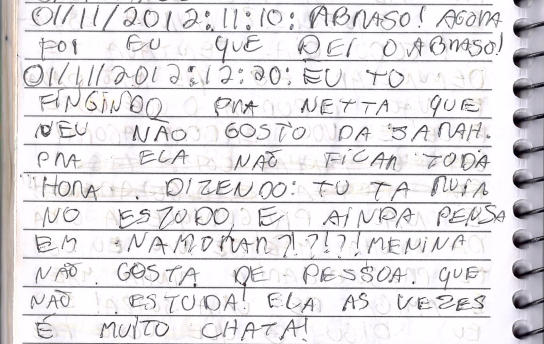 01/11/2012:11:10: ABRASO! AGORA
FOI EU QUE DEI O ABRASO!
01/11/2012:12:20: EU TO
FINGINDO PRA NETTA QUE
NEU NÃO GOSTO DA SARAH.
PRA ELA NÃO FICAR TODA
HORA. DIZENDO: TU TA RUIM
NO ESTUDO E AINDA PENSA
EM NAMORAR?!?!?! MENINA
NÃO GOSTA DE PESSOA. QUE
NÃO ESTUDA! ELA AS VEZES
É MUITO CHATA!